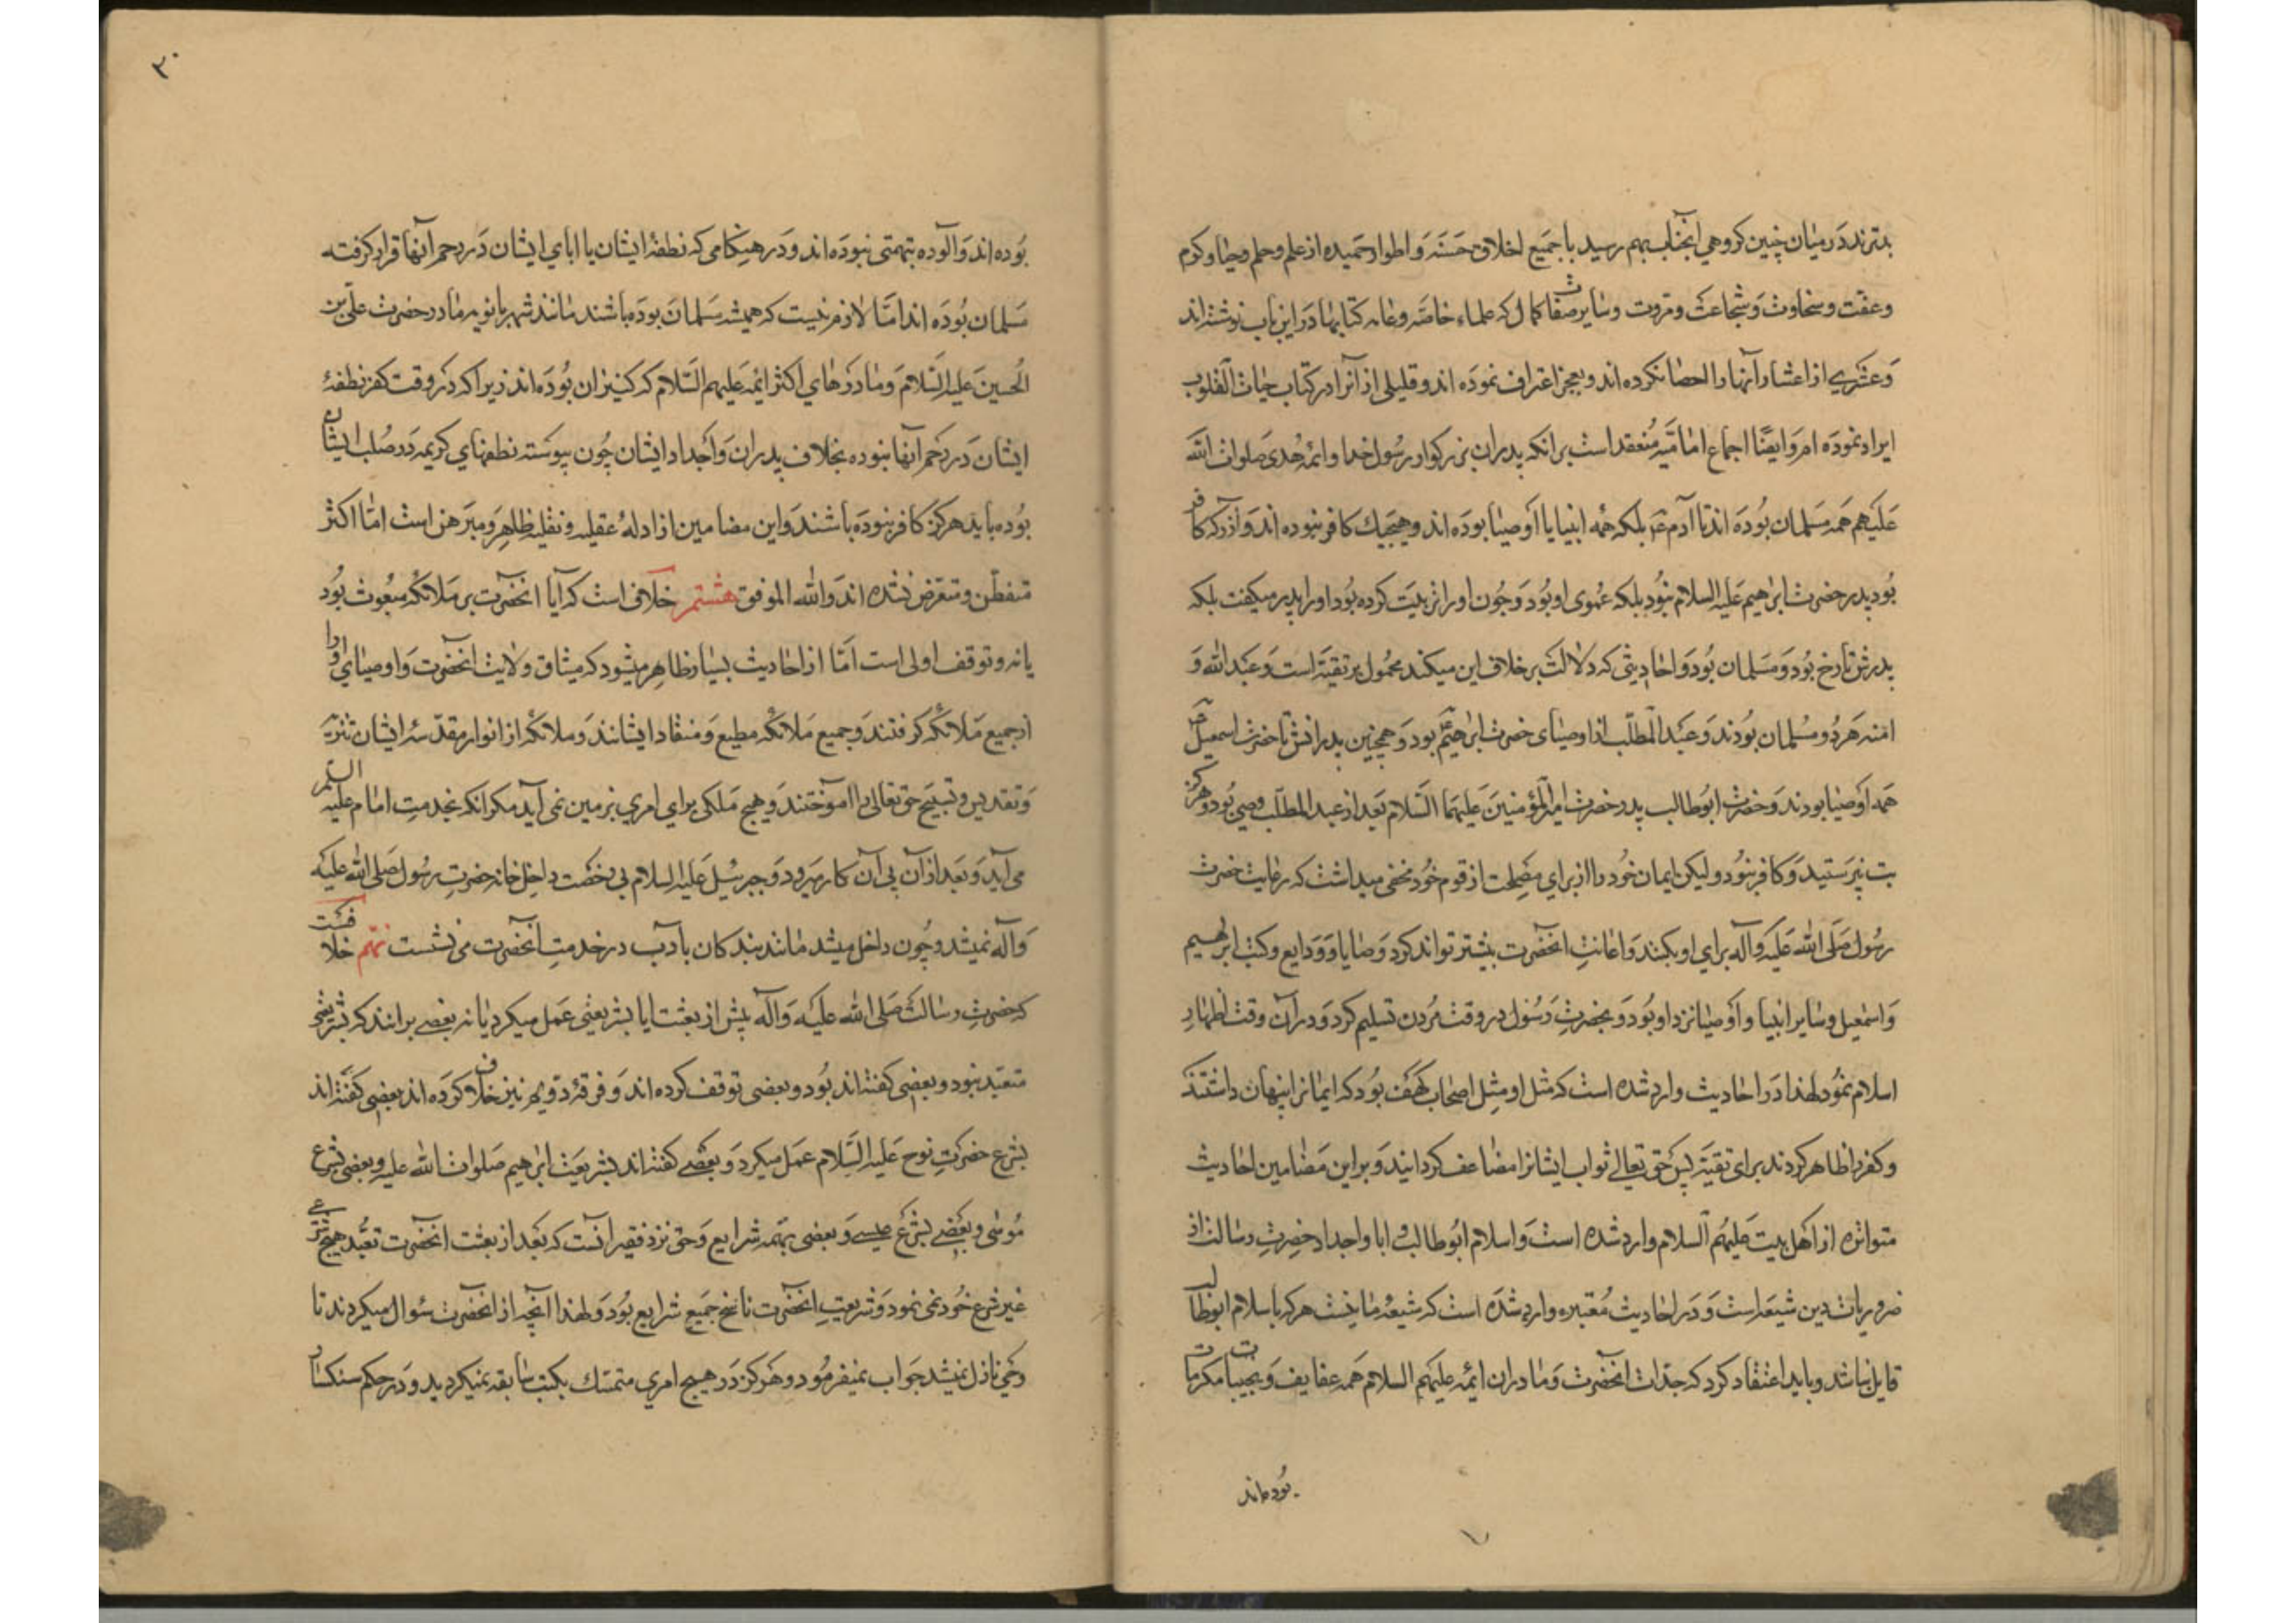 بدترند در میان چنین کروهی انجناب بهم رسید با جمیع اخلاق حسنه و اطوار حمیده از علم و حلم و حیا و کرم
و عفّت و سخاوت و شجاعت و مروت و سایر صفات کمال که علماء خاصه و عامه کتابها در این باب نوشته اند
و عشری از اعشار آنها را احصا نکرده اند و بعجز اعتراف نموده اند و قلیلی از آنرا در کتاب حیات القلوب
ایراد نموده ام و ایضًا اجماع امامیّه منعقد است بر انکه پدران بزرکوار رسول خدا و ائمه هدی صلوات الله
علیهم همه مسلمان بوده اند تا آدم ع بلکه همه انبیا یا اوصیا بوده اند و هیچیک کافر نبوده اند و آذر که کافر
بود پدر حضرت ابرٰهیم علیه السلام نبود بلکه عموی او بود و چون او را تربیت کرده بود او را پدر میکفت بلکه
پدرش تارخ بود و مسلمان بود و احادیثی که دلالت بر خلاف این میکند محمول بر تقیّه است و عبد الله و
امنه هر دو مسلمان بودند و عبد المطّلب از اوصیای حضرت ابرٰهیم بود و همچنین پدرانش تا حضرت اسمعیل
همه اوصیا بودند و حضرت ابوطالب پدر حضرت امیر المؤمنین علیهما السّلام بعد از عبد المطلّب وصی بود و هرکز
بت نپرستید و کافر نبود و لیکن ایمان خود را از برای مصلحت از قوم خود مخفی میداشت که رعایت حضرت
رسول صلی الله علیه و آله برای او بکنند و اعانت انحضرت بیشتر تواند کرد و وصایا و ودایع و کتب ابرٰهیم
و اسمٰعیل و سایر انبیا و اوصیا نزد او بود و بحضرت رسول در وقت مردن تسلیم کرد و در آن وقت اظهار
اسلام نمود لهذا در احادیث وارد شده است که مثل او مثل اصحاب کهف بود که ایمانرا پنهان داشتند
و کفر را ظاهر کردند برای تقیّه پس حق تعالی ثواب ایشانرا مضاعف کردانید و بر این مضامین احادیث
متواتره از اهل بیت علیهم السلام وارد شده است و اسلام ابوطالب و ابا و اجداد حضرت رسالت از
ضروریات دین شیعه است و در احادیث معتبره وارد شده است که شیعهٔ ما نیست هر که باسلام ابوطالب
قایل نباشد و باید اعتقاد کرد که جدّات انحضرت و مادران ائمه علیهم السلام همه عفایف و نجیبات مکرمات
بوده اند
۳۰
بوده اند و آلوده بتهمتی نبوده اند و در هنکامی که نطفهٔ ایشان یا ابای ایشان در رحم آنها قرار کرفته
مسلمان بوده اند امّا لازم نیست که همیشه مسلمان بوده باشند مانند شهربانویه مادر حضرت علی بن
الحسین علیه السّلام و مادرهای اکثر ائمه علیهم السّلام که کنیزان بوده اند زیرا که در وقت کفر نطفهٔ
ایشان در رحم آنها نبوده بخلاف پدران و اجداد ایشان چون پیوسته نطفهای کریمه در صلب ایشان
بوده باید هرکز کافر نبوده باشند و این مضامین از ادلهٔ عقلیه و نقلیه ظاهر و مبرهن است امّا اکثر
متفطّن و متعرّض نشده اند و الله الموفق هشتم خلافی است که آیا انحضرت بر ملائکه مبعوث بود
یا نه و توقف اولی است امّا از احادیث بسیار ظاهر میشود که میثاق ولایت انحضرت و اوصیای او را
از جمیع ملائکه کرفتند و جمیع ملائکه مطیع و منقاد ایشانند و ملائکه از انوار مقدّسهٔ ایشان تنزیه
و تقدیس و تسبیح حق تعالی را اموختند و هیچ ملکی برای امری بزمین نمی آید مکر انکه بخدمت امام علیه السلم
می آید و بعد از آن پی آن کار میرود و جبرئیل علیه السلام بی رخصت داخل خانه حضرت رسول صلی الله علیه
و آله نمیشد و چون داخل میشد مانند بندکان با ادب در خدمت انحضرت می نشست نهم خلافست
که حضرت رسالت صلی الله علیه و آله پیش از بعثت ایا بشریعتی عمل میکرد یا نه بعضی برانند که بشرعی
متعبّد نبود و بعضی کفته اند بود و بعضی توقف کرده اند و فرقهٔ دویم نیز خلاف کرده اند بعضی کفته اند
بشرع حضرت نوح علیه السّلام عمل میکرد و بعضی کفته اند بشریعت ابرٰهیم صلوات الله علیه و بعضی بشرع
موسٰی و بعضی بشرع عیسی و بعضی بهمه شرایع و حق نزد فقیر انست که بعد از بعثت انحضرت تعبّد بهیچ شرعی
غیر شرع خود نمی نمود و شریعت انحضرت ناسخ جمیع شرایع بود و لهذا آنچه از انحضرت سئوال میکردند تا
وحی نازل نمیشد جواب نمیفرمود و هرکز در هیچ امری متمسّک بکتب سابقه نمیکردید و در حکم سنکسار